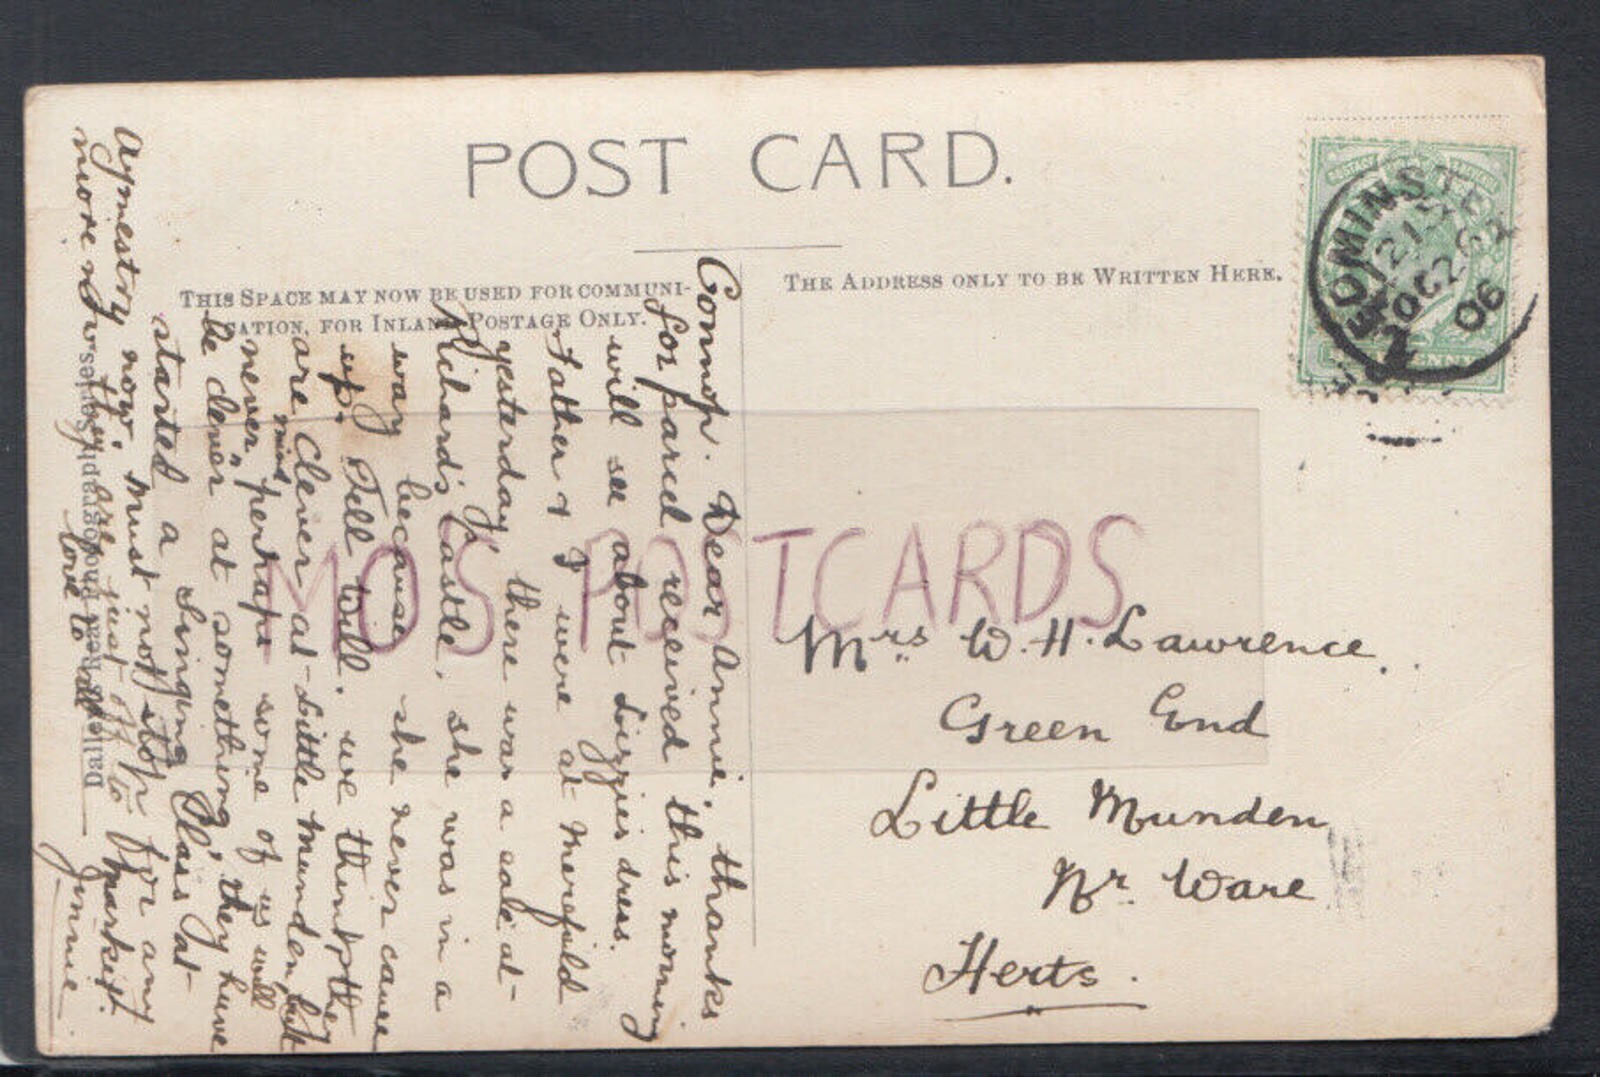 POST CARD.
THIS SPACE MAY NOW BE USED FOR COMMUNI-
CATION, FOR INLAND POSTAGE ONLY.
THE ADDRESS ONLY TO BE WRITTEN HERE.
LEOMINSTER
OC 26
06
Mrs W. H. Lawrence.
Green End
Little Munden
Nr. Ware
Herts.
Connop. Dear Annie, thanks
for parcel received this morning
will see about Lizzies dress.
Father & I were at Merefield
yesterday, there was a sale at
Richards Castle, she was in a
way because she never came
up. Tell Will. we think they
are clever at Little Munden, but
never mind, perhaps some of us will
be clever at something, they have
started a Singing Class at
Aymestry now, must not stop for any
more now they are just off to market.
love to all Jinnie.
MOS POSTCARDS